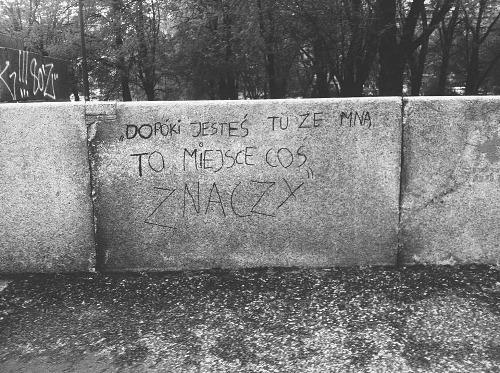 „DOPÓKI JESTEŚ TU ZE MNĄ
TO MIEJSCE COŚ
ZNACZY"